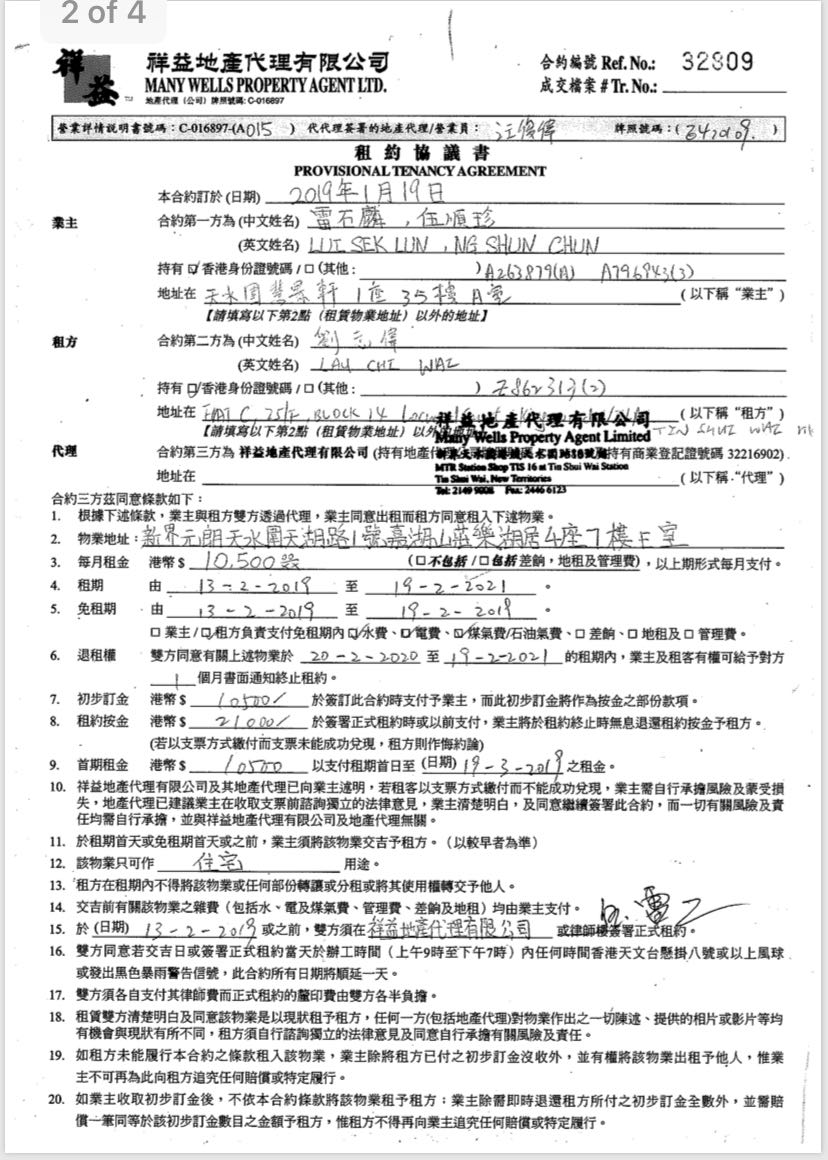 2 of 4
祥益
祥益地產代理有限公司
MANY WELLS PROPERTY AGENT LTD.
地產代理（公司）牌照號碼: C-016897
合約編號 Ref. No.: 32809
成交檔案 # Tr. No.:
營業詳情說明書號碼：C-016897-(A015 ) 代代理簽署的地產代理/營業員： 牌照號碼：( )
租約協議書
PROVISIONAL TENANCY AGREEMENT
本合約訂於 (日期) 2019年1月19日
業主 合約第一方為 (中文姓名) 雷石麟 , 伍順珍
(英文姓名) LUI SEK LUN , NG SHUN CHUN
持有 ☑ 香港身份證號碼 / □ (其他： ) A263879(A) A796943(3)
地址在 天水圍慧景軒 1座 35樓 A室 ( 以下稱 "業主" )
【請填寫以下第2點 (租賃物業地址) 以外的地址】
租方 合約第二方為 (中文姓名) 劉志偉
(英文姓名) LAU CHI WAI
持有 ☑ 香港身份證號碼 / □ (其他： ) Z862313(2)
地址在 FLAT C, 25/F, BLOCK 14 TIN SHUI WAI ( 以下稱 "租方" )
【請填寫以下第2點 (租賃物業地址) 以外的地址】
祥益地產代理有限公司
Many Wells Property Agent Limited
MTR Station Shop TIS 16 at Tin Shui Wai Station
Tin Shui Wai, New Territories
Tel: 2149 9008 Fax: 2446 6123
代理 合約第三方為 祥益地產代理有限公司 (持有地產代 持有商業登記證號碼 32216902)
地址在 ( 以下稱 "代理" )
合約三方茲同意條款如下：
1. 根據下述條款，業主與租方雙方透過代理，業主同意出租而租方同意租入下述物業。
2. 物業地址：新界元朗天水圍天湖路1號嘉湖山莊樂湖居4座7樓F室
3. 每月租金 港幣 $ 10,500 (□不包括 / □包括差餉，地租及管理費)，以上期形式每月支付。
4. 租期 由 13-2-2019 至 19-2-2021 。
5. 免租期 由 13-2-2019 至 19-2-2019 。
□ 業主 / ☑租方負責支付免租期內 ☑水費、☑電費、☑煤氣費/石油氣費、□ 差餉、□ 地租及 □ 管理費。
6. 退租權 雙方同意有關上述物業於 20-2-2020 至 19-2-2021 的租期內，業主及租客有權可給予對方
1 個月書面通知終止租約。
7. 初步訂金 港幣 $ 10500/ 於簽訂此合約時支付予業主，而此初步訂金將作為按金之部份款項。
8. 租約按金 港幣 $ 21000/ 於簽署正式租約時或以前支付，業主將於租約終止時無息退還租約按金予租方。
(若以支票方式繳付而支票未能成功兌現，租方則作悔約論)
9. 首期租金 港幣 $ 10500 以支付租期首日至 (日期) 19-3-2019 之租金。
10. 祥益地產代理有限公司及其地產代理已向業主述明，若租客以支票方式繳付而不能成功兌現，業主需自行承擔風險及蒙受損
失，地產代理已建議業主在收取支票前諮詢獨立的法律意見，業主清楚明白，及同意繼續簽署此合約，而一切有關風險及責
任均需自行承擔，並與祥益地產代理有限公司及地產代理無關。
11. 於租期首天或免租期首天或之前，業主須將該物業交吉予租方。（以較早者為準）
12. 該物業只可作 住宅 用途。
13. 租方在租期內不得將該物業或任何部份轉讓或分租或將其使用權轉交予他人。
14. 交吉前有關該物業之雜費（包括水、電及煤氣費、管理費、差餉及地租）均由業主支付。
15. 於 (日期) 13-2-2019 或之前，雙方須在 祥益地產代理有限公司 或律師樓簽署正式租約。
16. 雙方同意若交吉日或簽署正式租約當天於辦工時間（上午9時至下午7時）內任何時間香港天文台懸掛八號或以上風球
或發出黑色暴雨警告信號，此合約所有日期將順延一天。
17. 雙方須各自支付其律師費而正式租約的釐印費由雙方各半負擔。
18. 租賃雙方清楚明白及同意該物業是以現狀租予租方，任何一方(包括地產代理)對物業作出之一切陳述、提供的相片或影片等均
有機會與現狀有所不同，租方須自行諮詢獨立的法律意見及同意自行承擔有關風險及責任。
19. 如租方未能履行本合約之條款租入該物業，業主除將租方已付之初步訂金沒收外，並有權將該物業出租予他人，惟業
主不可再為此向租方追究任何賠償或特定履行。
20. 如業主收取初步訂金後，不依本合約條款將該物業租予租方；業主除需即時退還租方所付之初步訂金全數外，並需賠
償一筆同等於該初步訂金數目之金額予租方，惟租方不得再向業主追究任何賠償或特定履行。